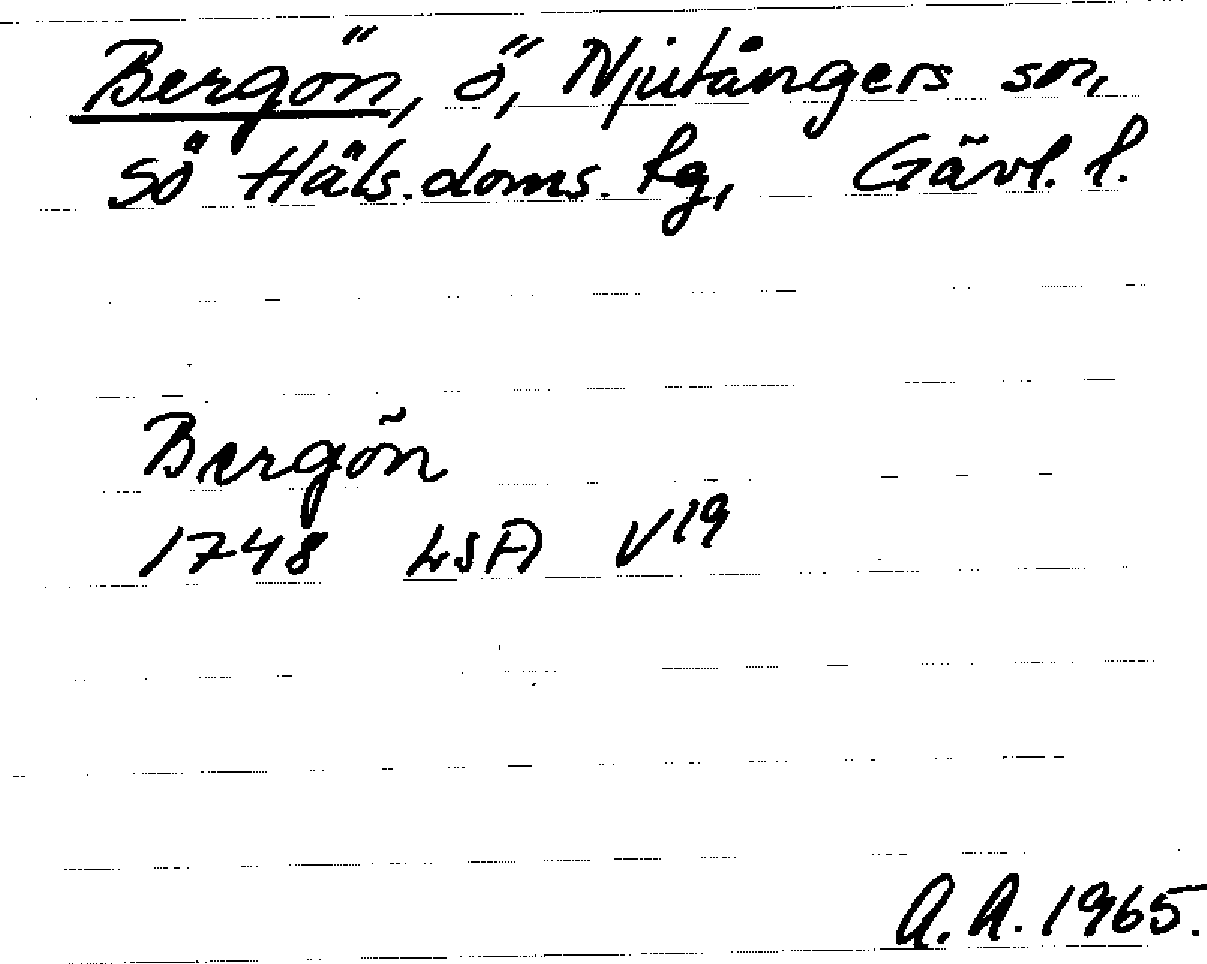 Bergön, ö, Njutångers sn,
Sö Häls. doms. lg, Gävl. l.
Bergön
1748 LSA V19
A. A. 1965.